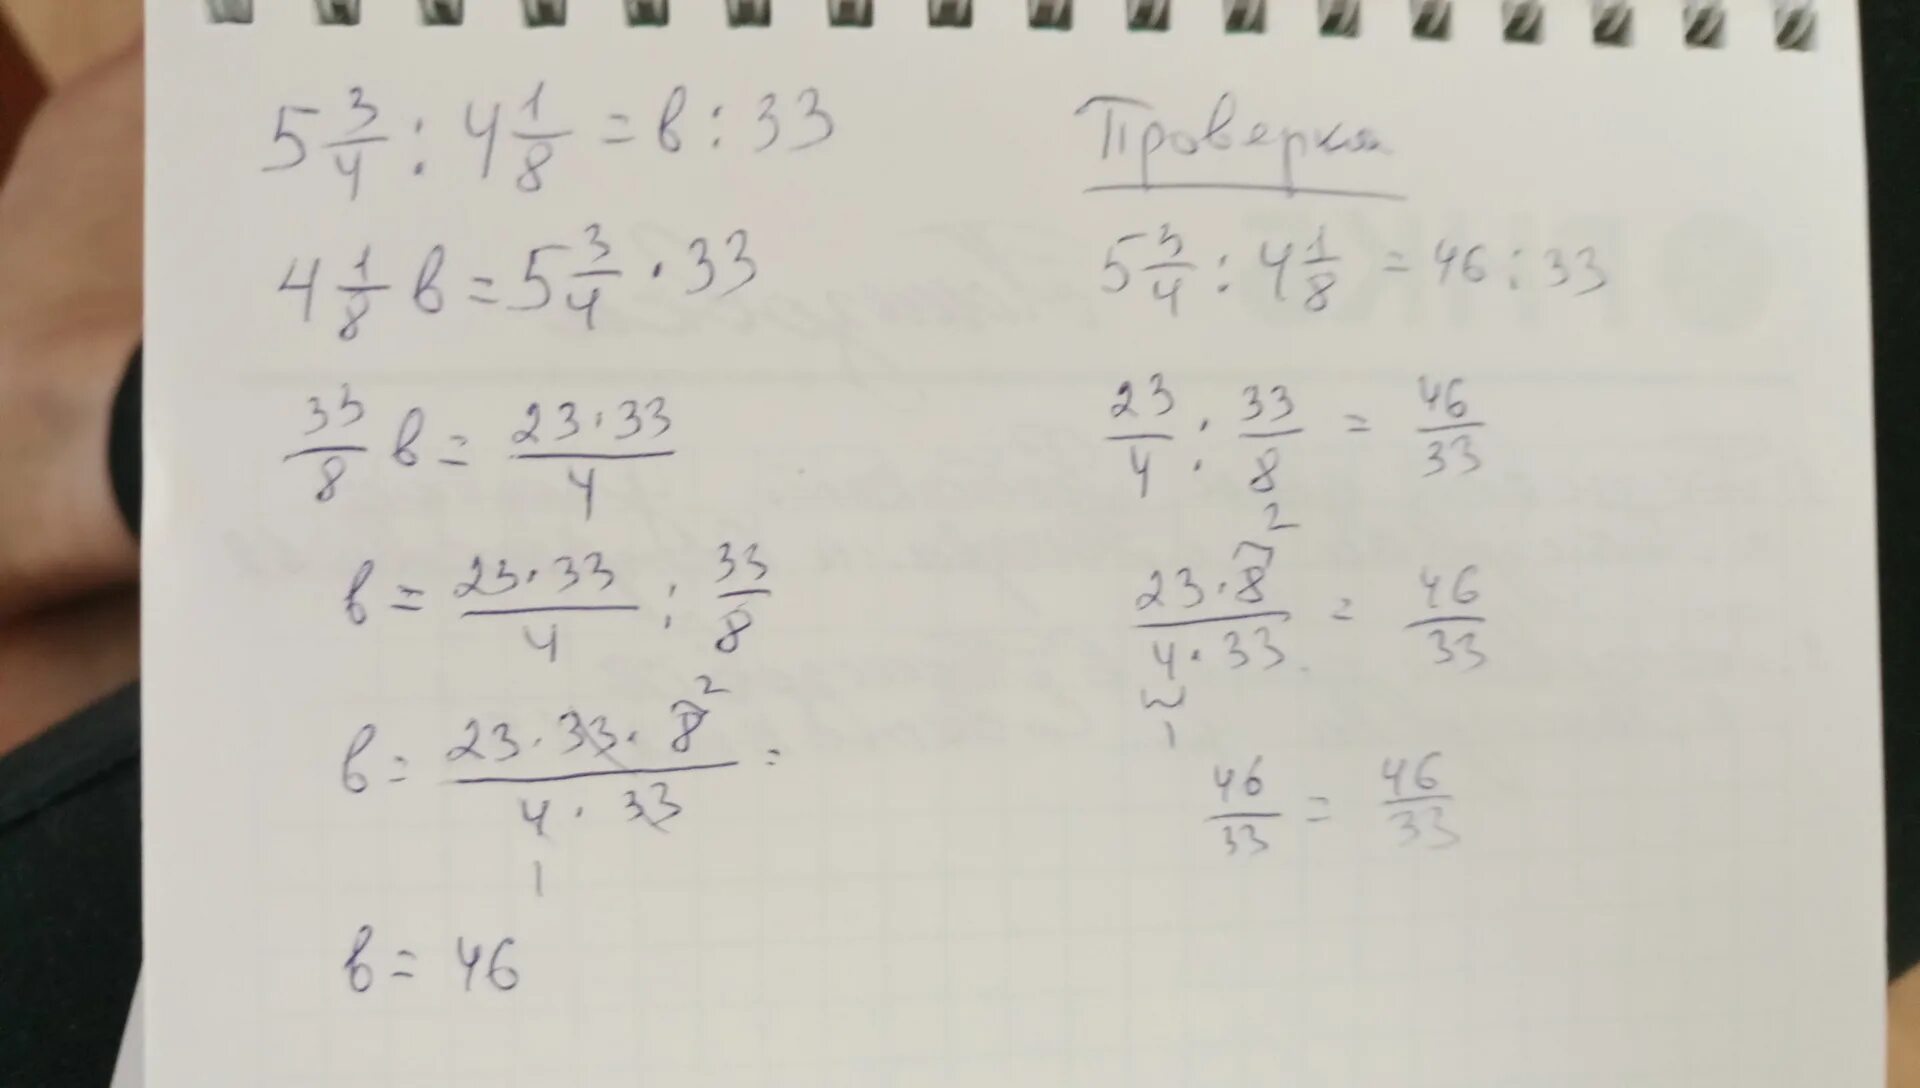 5 3/4 : 4 1/8 = в : 33
4 1/8 в = 5 3/4 · 33
33/8 в = 23·33/4
в = 23·33/4 : 33/8
в = 23·33·8²/4·33 =
1
в = 46
Проверка
5 3/4 : 4 1/8 = 46 : 33
23/4 : 33/8 = 46/33
23·8²/4·33 = 46/33
1
46/33 = 46/33